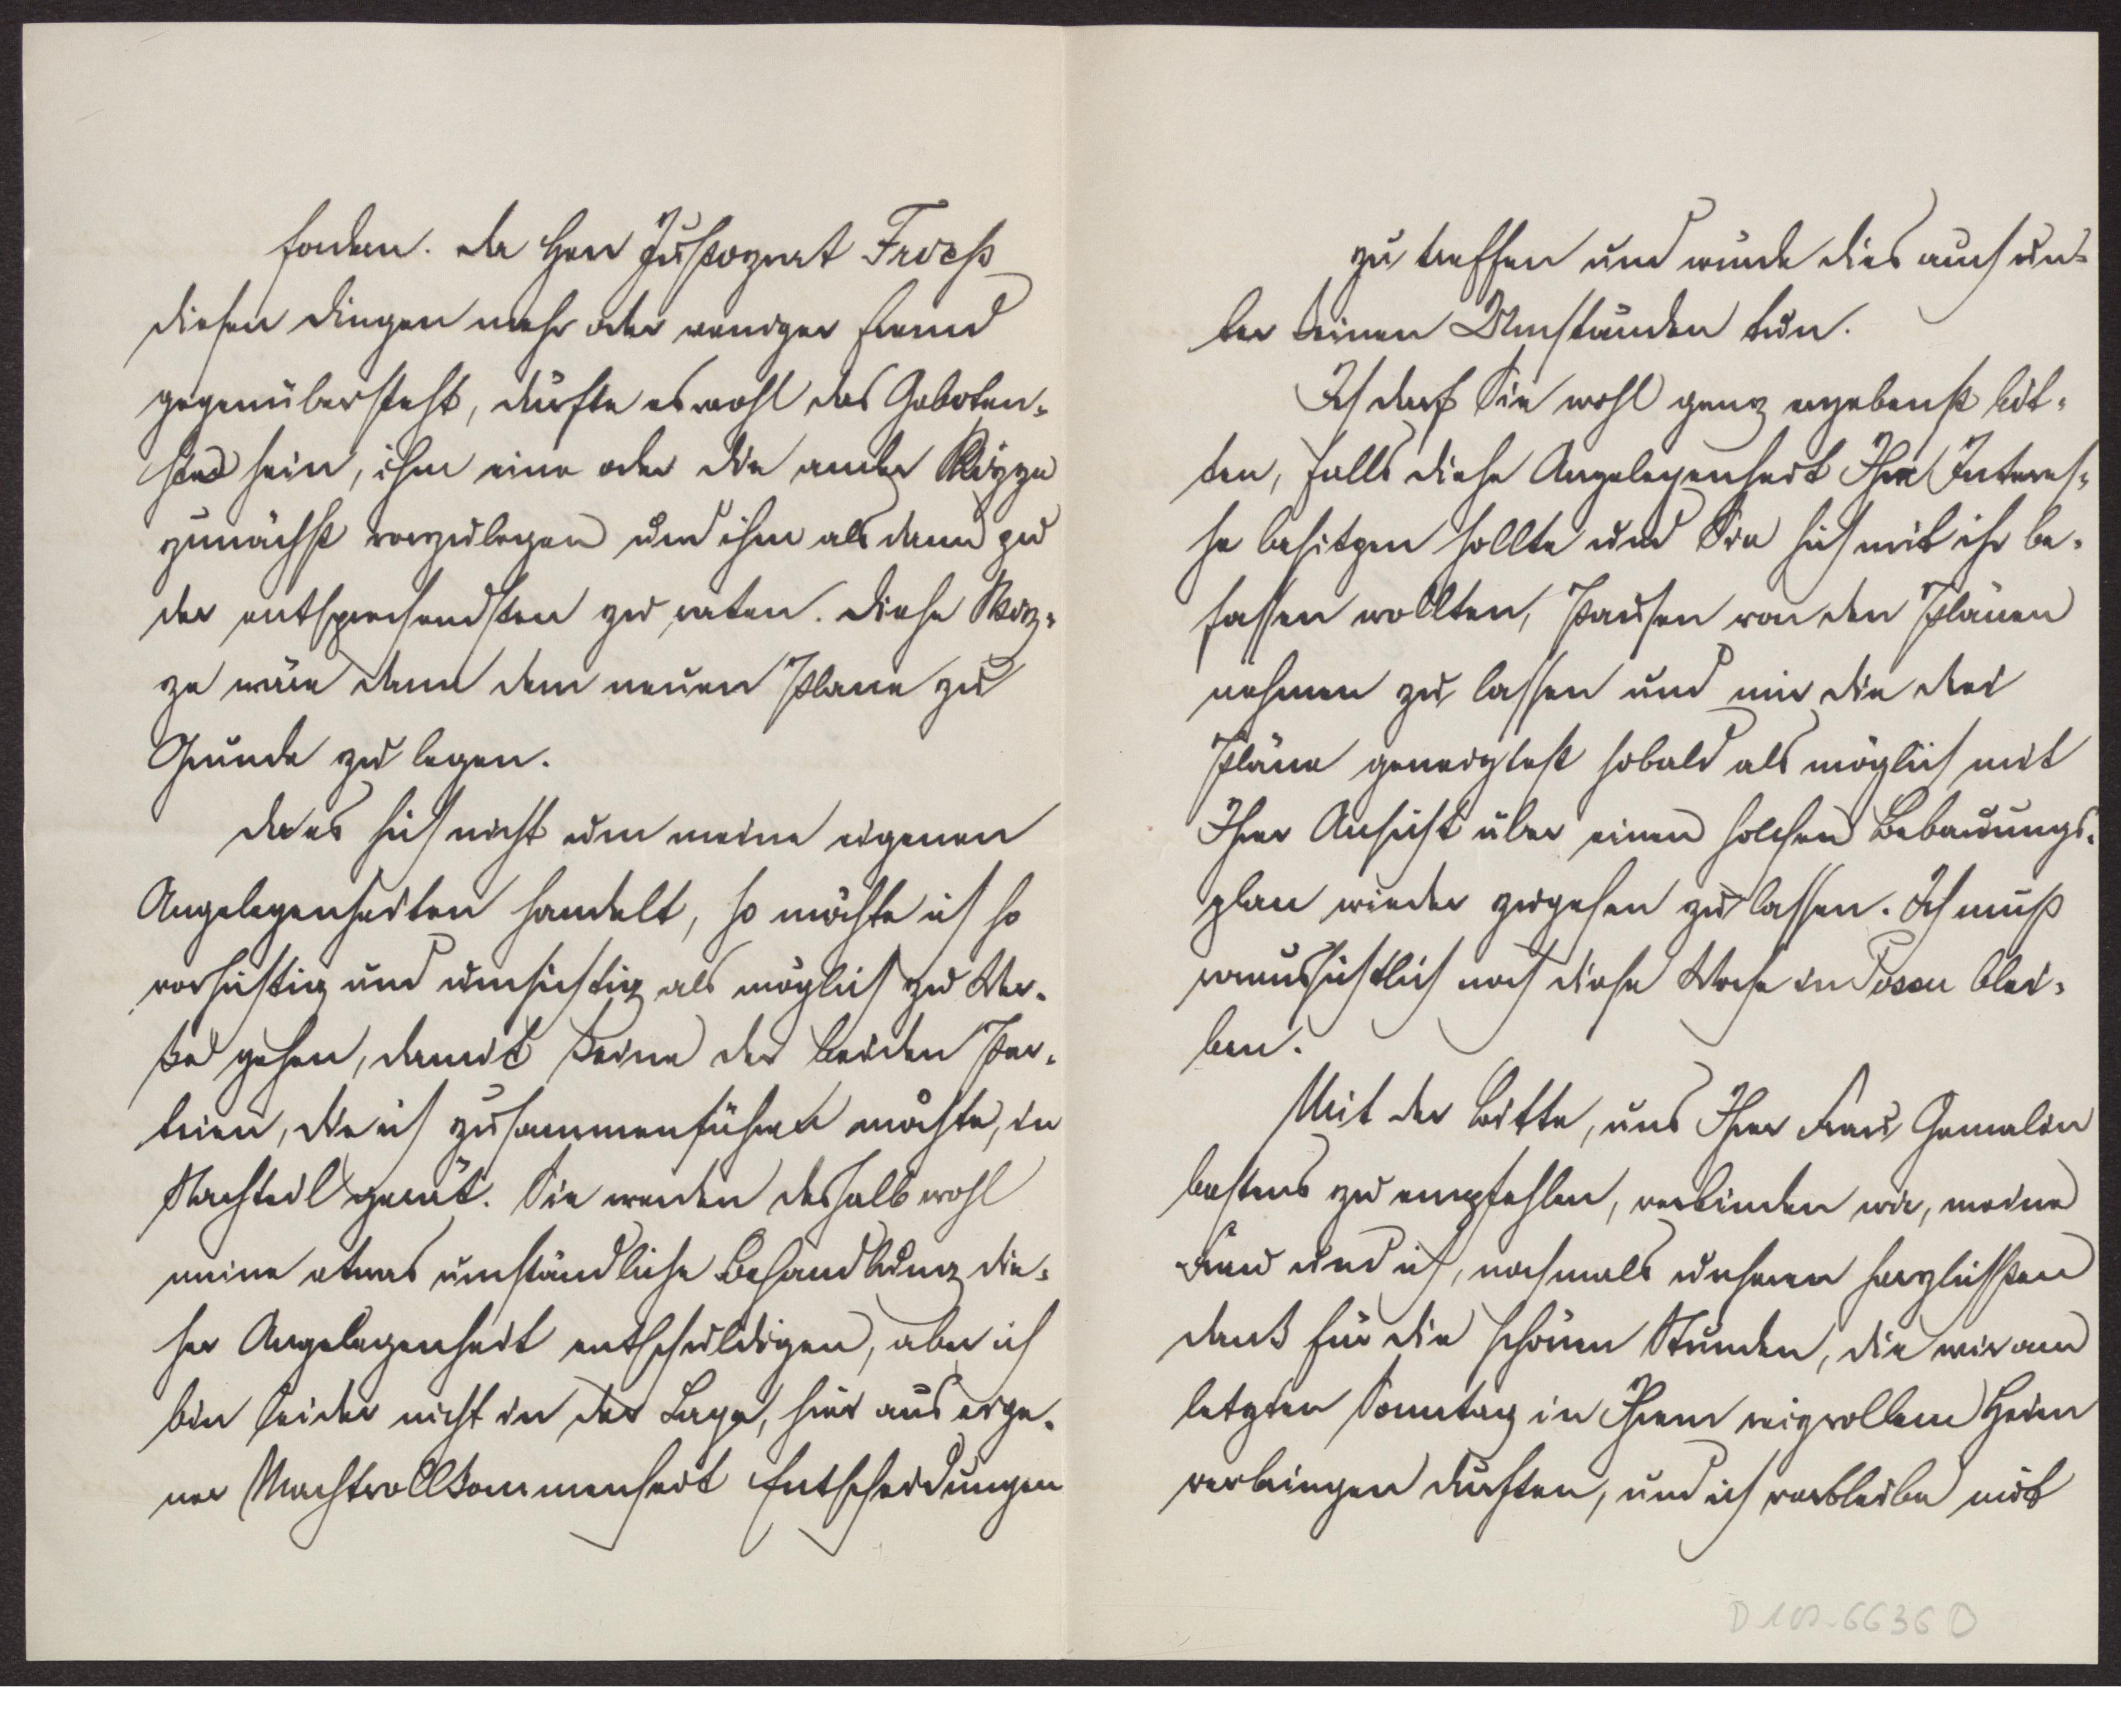 fordern. Da Herr Justizrat Troeß
diesen Dingen mehr oder weniger fremd
gegenübersteht, dürfte es wohl das Geboten-
ste sein, ihm eine oder die andere Skizze
zunächst vorzulegen und ihm alsdann zu
der entsprechendsten zu raten. Diese Skiz-
ze wäre dann dem neuen Plane zu
Grunde zu legen.
Da es sich nicht um meine eigenen
Angelegenheiten handelt, so möchte ich so
vorsichtig und umsichtig als möglich zu Wer-
ke gehen, damit keine der beiden Par-
teien, die ich zusammenführen möchte, in
Nachteil gerät. Sie werden deshalb wohl
meine etwas umständliche Behandlung die-
ser Angelegenheit entschuldigen, aber ich
bin leider nicht in der Lage, hier aus eige-
ner Machtvollkommenheit Entscheidungen
zu treffen und würde dies auch un-
ter keinen Umständen tun.
Ich darf Sie wohl ganz ergebenst bit-
ten, falls diese Angelegenheit Ihr Interes-
se besitzen sollte und Sie sich mit ihr be-
fassen wollten, Pausen von den Plänen
nehmen zu lassen und mir die drei
Pläne geneigtest sobald als möglich mit
Ihrer Ansicht über einen solchen Bebauungs-
plan wieder zugehen zu lassen. Ich muß
voraussichtlich noch diese Woche in Posen blei-
ben.
Mit der Bitte, uns Ihrer Frau Gemalin
bestens zu empfehlen, verbinden wir, meine
Frau und ich, nochmals unseren herzlichsten
Dank für die schönen Stunden, die wir am
letzten Sonntag in Ihrem reizvollem Heim
verbringen durften, und ich verbleibe mit